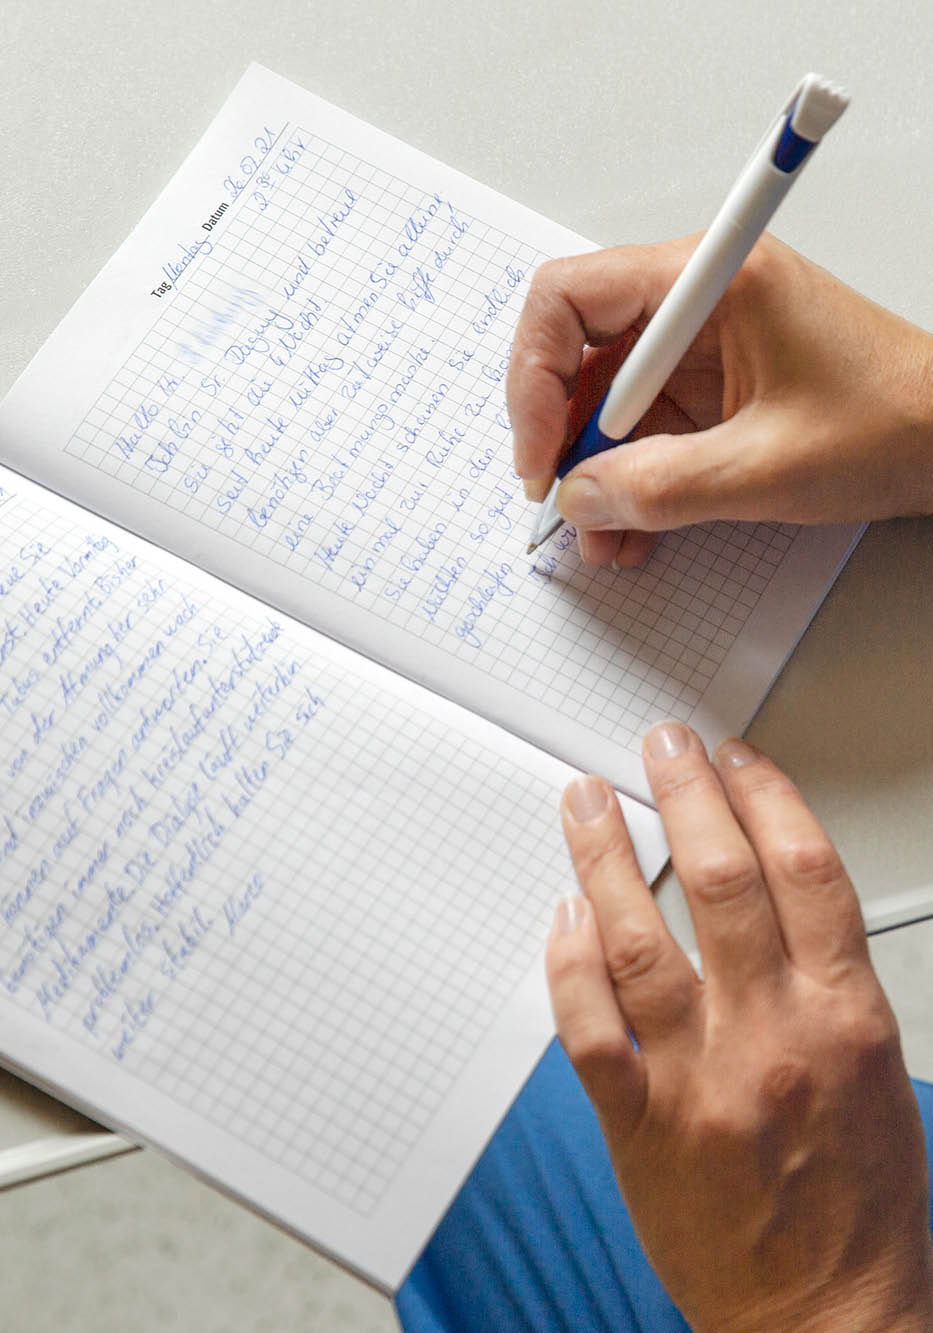 Sie
Heute Vormittag
Tubus entfernt. Bisher
von der Atmung her sehr
inzwischen vollkommen wach
können auf Fragen antworten. Sie
benötigen immer noch kreislaufunterstützende
Medikamente. Die Dialyse läuft weiterhin
problemlos. Hoffentlich halten Sie sich
weiter stabil.
Tag Montag Datum 26.07.21
2 30 Uhr
Hallo Hr.
Ich bin Sr. Dagmar und betreue
Sie jetzt die 4. Nacht.
Seit heute Mittag atmen Sie alleine,
benötigen aber zeitweise Hilfe durch
eine Beatmungsmaske.
Heute Nacht scheinen Sie endlich
einmal zur Ruhe zu
Sie haben in den
Nächten so gut
geschlafen
Ich